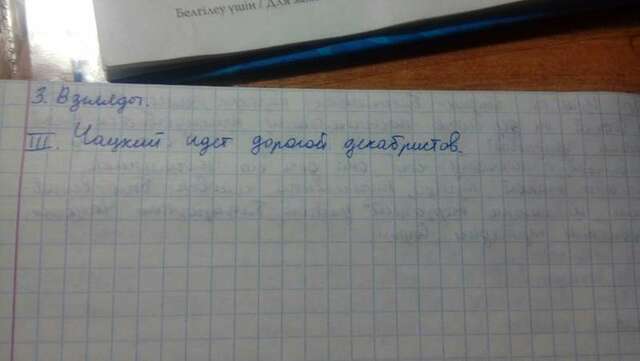 Белгілеу үшін / Для
3. Взгляды.
III. Чацкий идет дорогой декабристов.